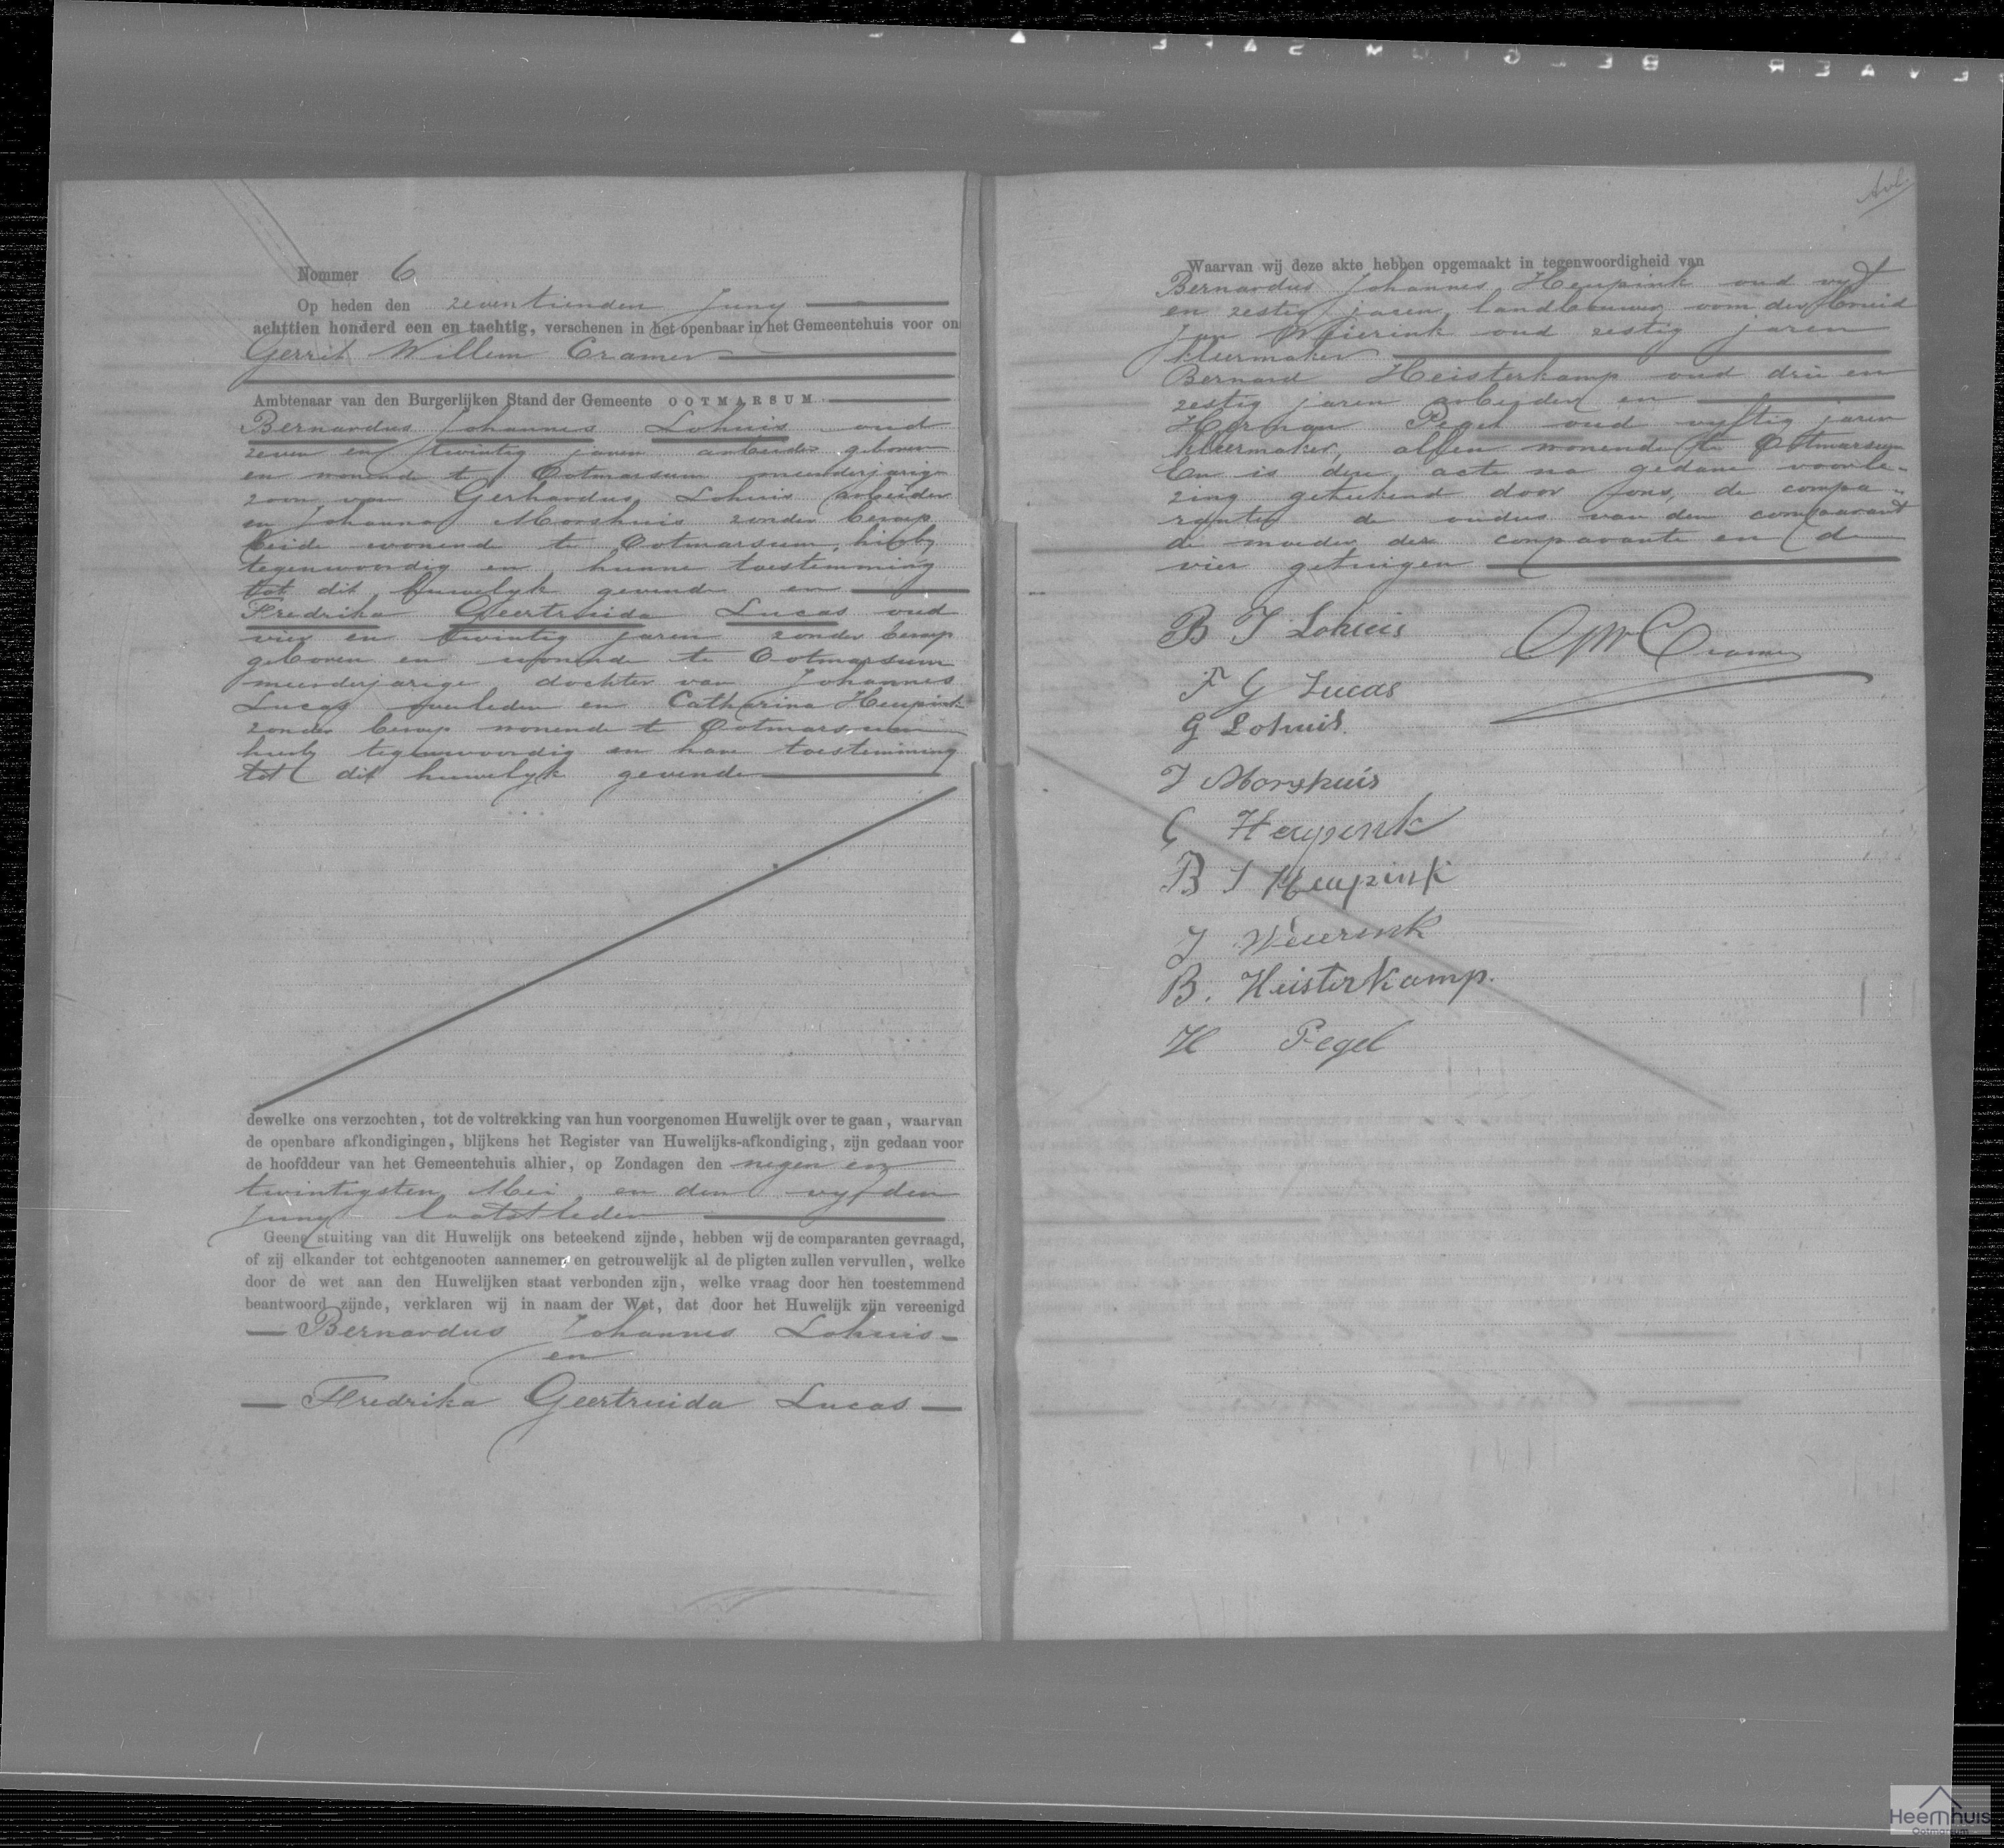 Nommer 6
Op heden den zeventienden Juny
achttien honderd een en tachtig, verschenen in het openbaar in het Gemeentehuis voor on
Gerrit Willem Cramer
Ambtenaar van den Burgerlijken Stand der Gemeente OOTMARSUM
Bernardus Johannes Lohuis oud
zeven en twintig jaren arbeider geboren
en wonende te Ootmarsum meerderjarige
zoon van Gerhardus Lohuis arbeider
en Johanna Morshuis zonder beroep
beide wonende te Ootmarsum, hierby
tegenwoordig en hunne toestemming
tot dit huwelyk gevende en
Fredrika Geertruida Lucas oud
vier en twintig jaren zonder beroep
geboren en wonende te Ootmarsum
meerderjarige dochter van Johannes
Lucas overleden en Catharina Heupink
zonder beroep wonende te Ootmarsum
hierby tegenwoordig en hare toestemming
tot dit huwelyk gevende
dewelke ons verzochten, tot de voltrekking van hun voorgenomen Huwelijk over te gaan, waarvan
de openbare afkondigingen, blijkens het Register van Huwelijks-afkondiging, zijn gedaan voor
de hoofddeur van het Gemeentehuis alhier, op Zondagen den negen en
twintigsten Mei en den vyfden
Juny laatstleden
Geene stuiting van dit Huwelijk ons beteekend zijnde, hebben wij de comparanten gevraagd,
of zij elkander tot echtgenooten aannemen en getrouwelijk al de pligten zullen vervullen, welke
door de wet aan den Huwelijken staat verbonden zijn, welke vraag door hen toestemmend
beantwoord zijnde, verklaren wij in naam der Wet, dat door het Huwelijk zijn vereenigd
Bernardus Johannes Lohuis
en
Fredrika Geertruida Lucas
Waarvan wij deze akte hebben opgemaakt in tegenwoordigheid van
Bernardus Johannes Heupink oud vyf
en zestig jaren landbouwer oom der bruid
Jan Weierink oud zestig jaren
kleermaker
Bernard Heisterkamp oud drie en
zestig jaren arbeider en
Herman Pegel oud vyftig jaren
kleermaker, allen wonende te Ootmarsum
En is deze acte na gedane voorle-
zing geteekend door ons, de compa-
ranten de ouders van den comparant
de moeder der comparante en de
vier getuigen
B J Lohuis
GW Cramer
F G Lucas
G Lohuis.
J Morshuis
C Heupink
B J Heupink
J Weierink
B. Heisterkamp.
H Pegel
Heemhuis
Ootmarsum